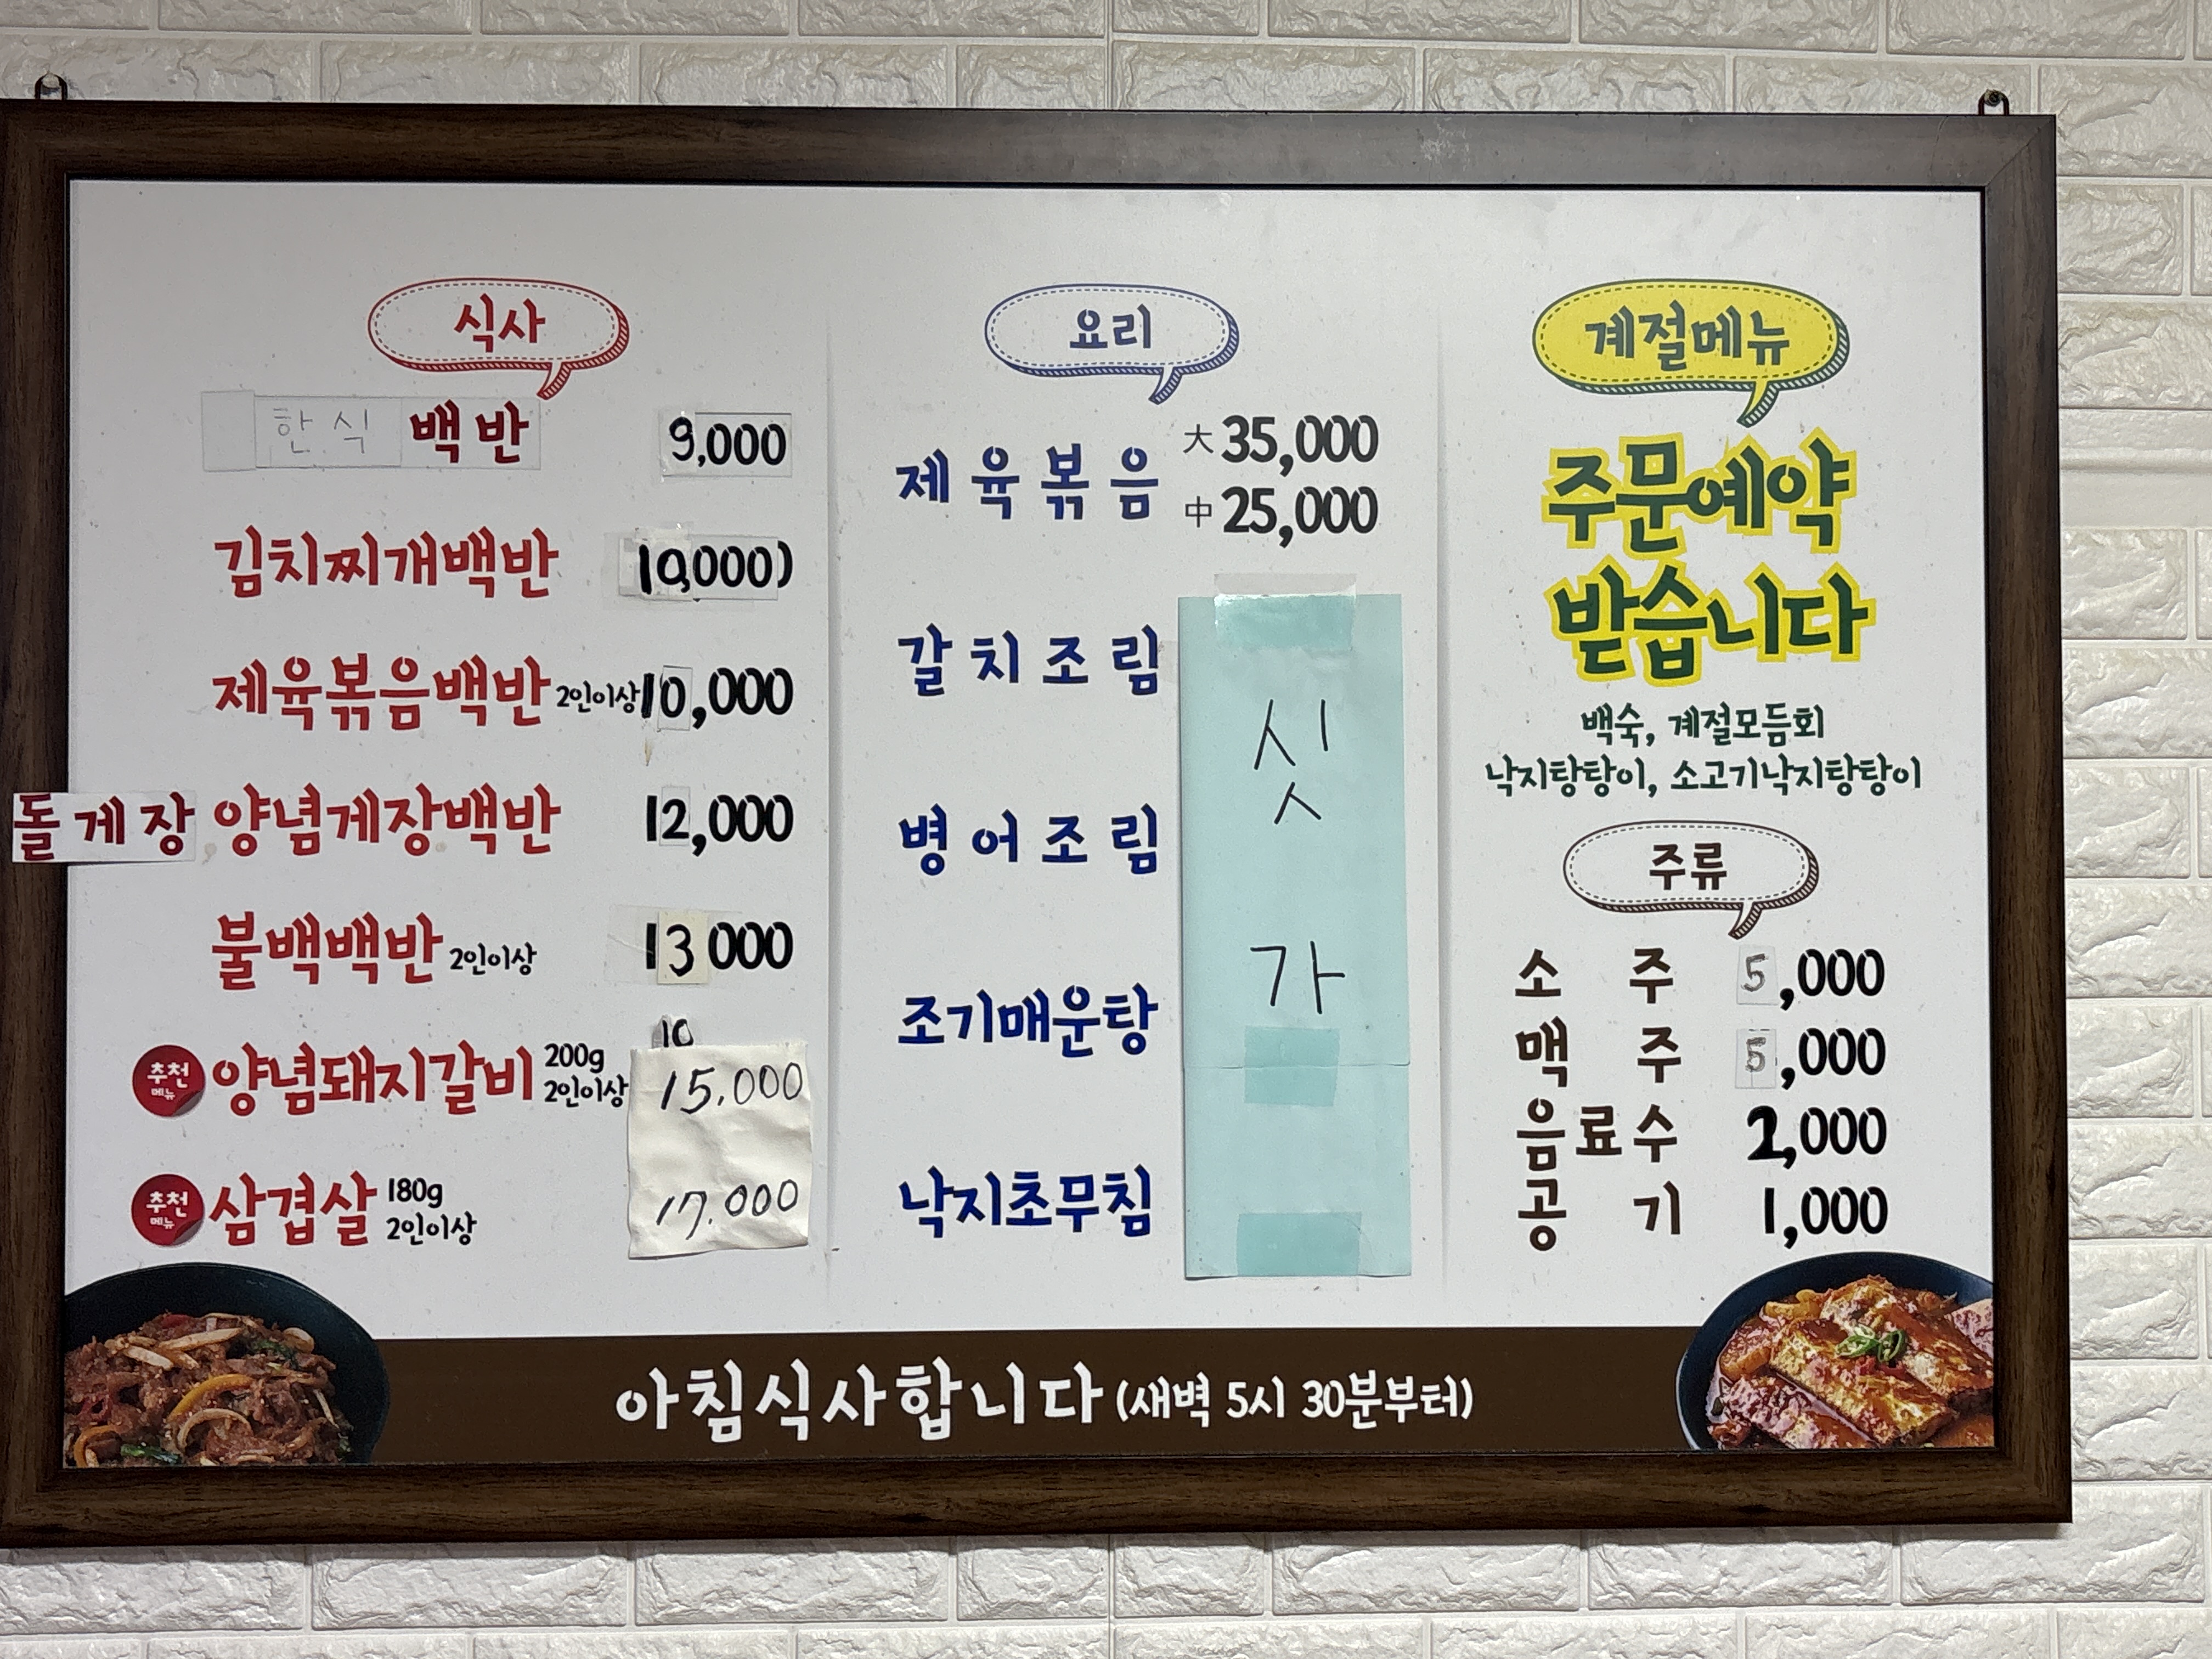 식사
한식 백반 9,000
김치찌개백반 10,000)
제육볶음백반 2인이상 10,000
돌게장 양념게장백반 12,000
불백백반 2인이상 13 000
10
추천 메뉴 양념돼지갈비 200g 2인이상 15,000
추천 메뉴 삼겹살 180g 2인이상 17.000
요리
제육볶음 大 35,000
中 25,000
갈치조림
병어조림
조기매운탕
낙지초무침
싯가
계절메뉴
주문예약
받습니다
백숙, 계절모듬회
낙지탕탕이, 소고기낙지탕탕이
주류
소주 5,000
맥주 5,000
음료수 2,000
공기 1,000
아침식사합니다 (새벽 5시 30분부터)